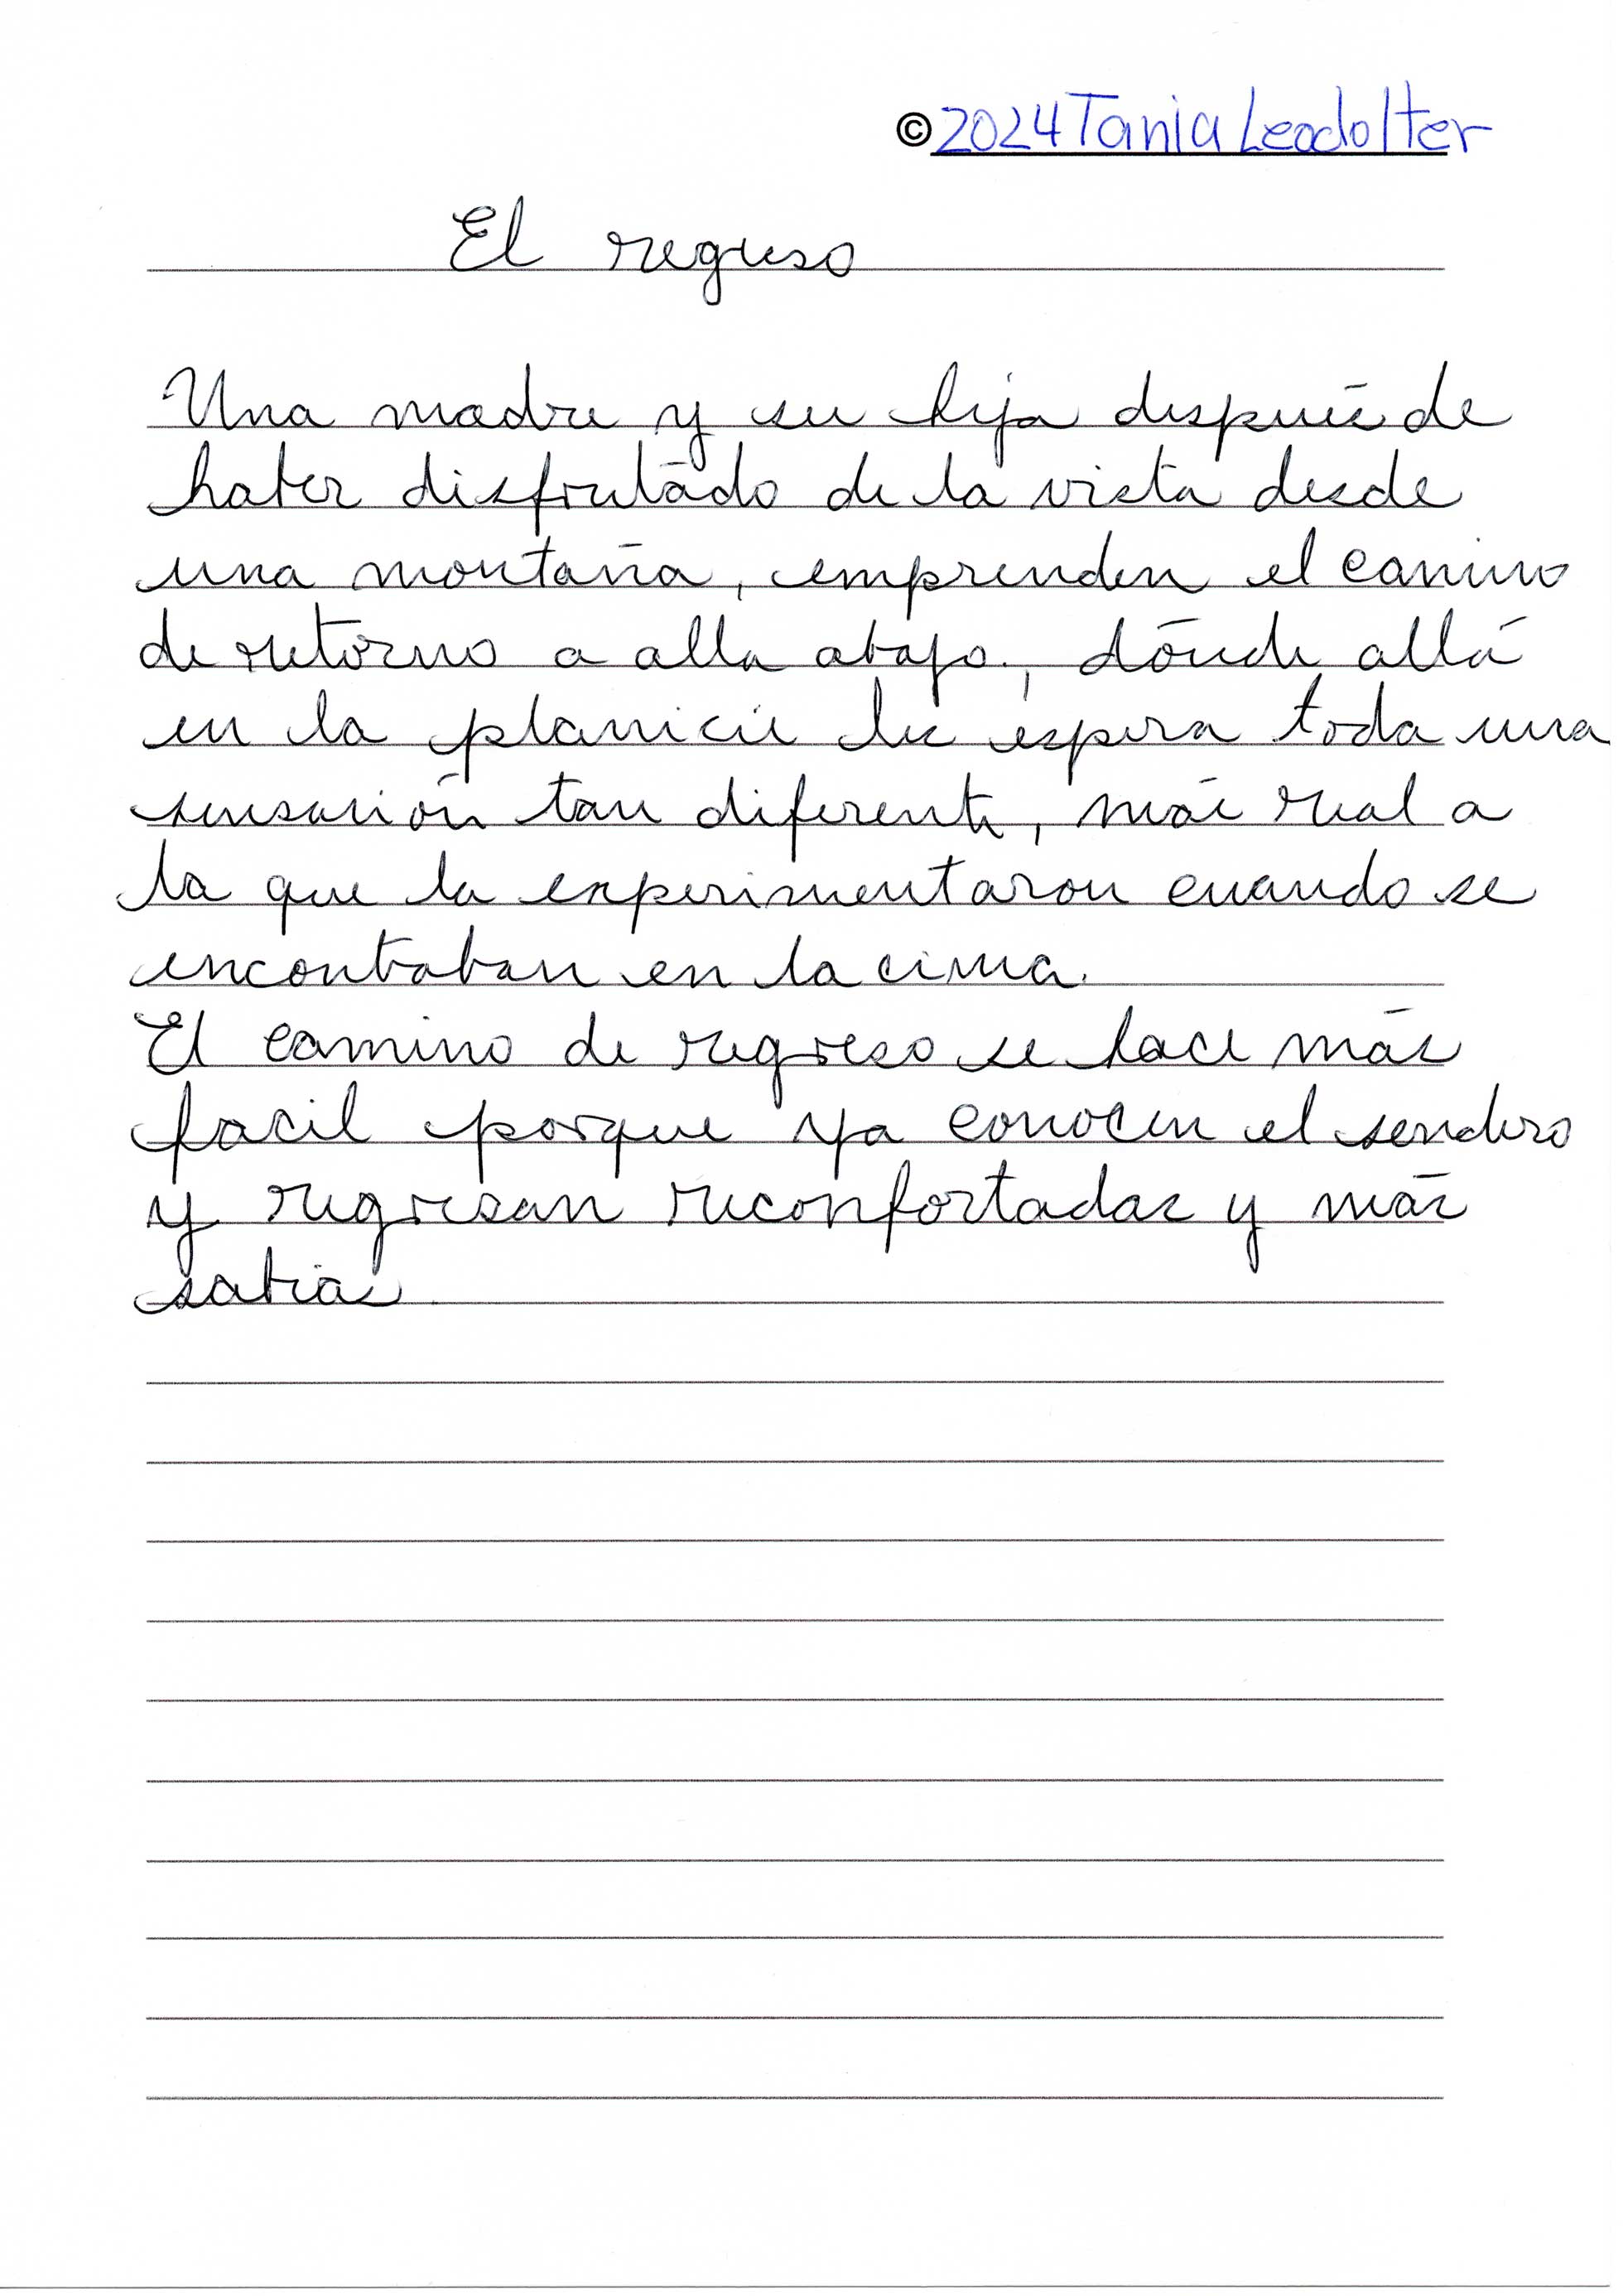 ©2024 Tania Leodolter
El regreso
Una madre y su hija después de
haber disfrutado de la vista desde
una montaña, emprenden el camino
de retorno a alla abajo, dónde allá
en la planicie les espera toda una
sensación tan diferente, más real a
la que la experimentaron cuando se
encontraban en la cima.
El camino de regreso se hace más
facil porque ya conocen el sendero
y regresan reconfortadas y más
sabias.